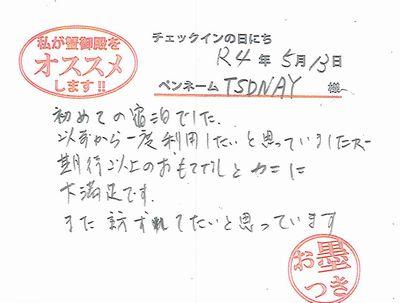 私が蟹御殿を
オススメ
します!!
チェックインの日にち
R4年5月13日
ペンネーム TSDNAY 様
初めての宿泊でした.
以前から一度利用したいと思っていましたが
期待以上のおもてなしとカニに
大満足です.
また訪ずれてたいと思っています
お墨
つき